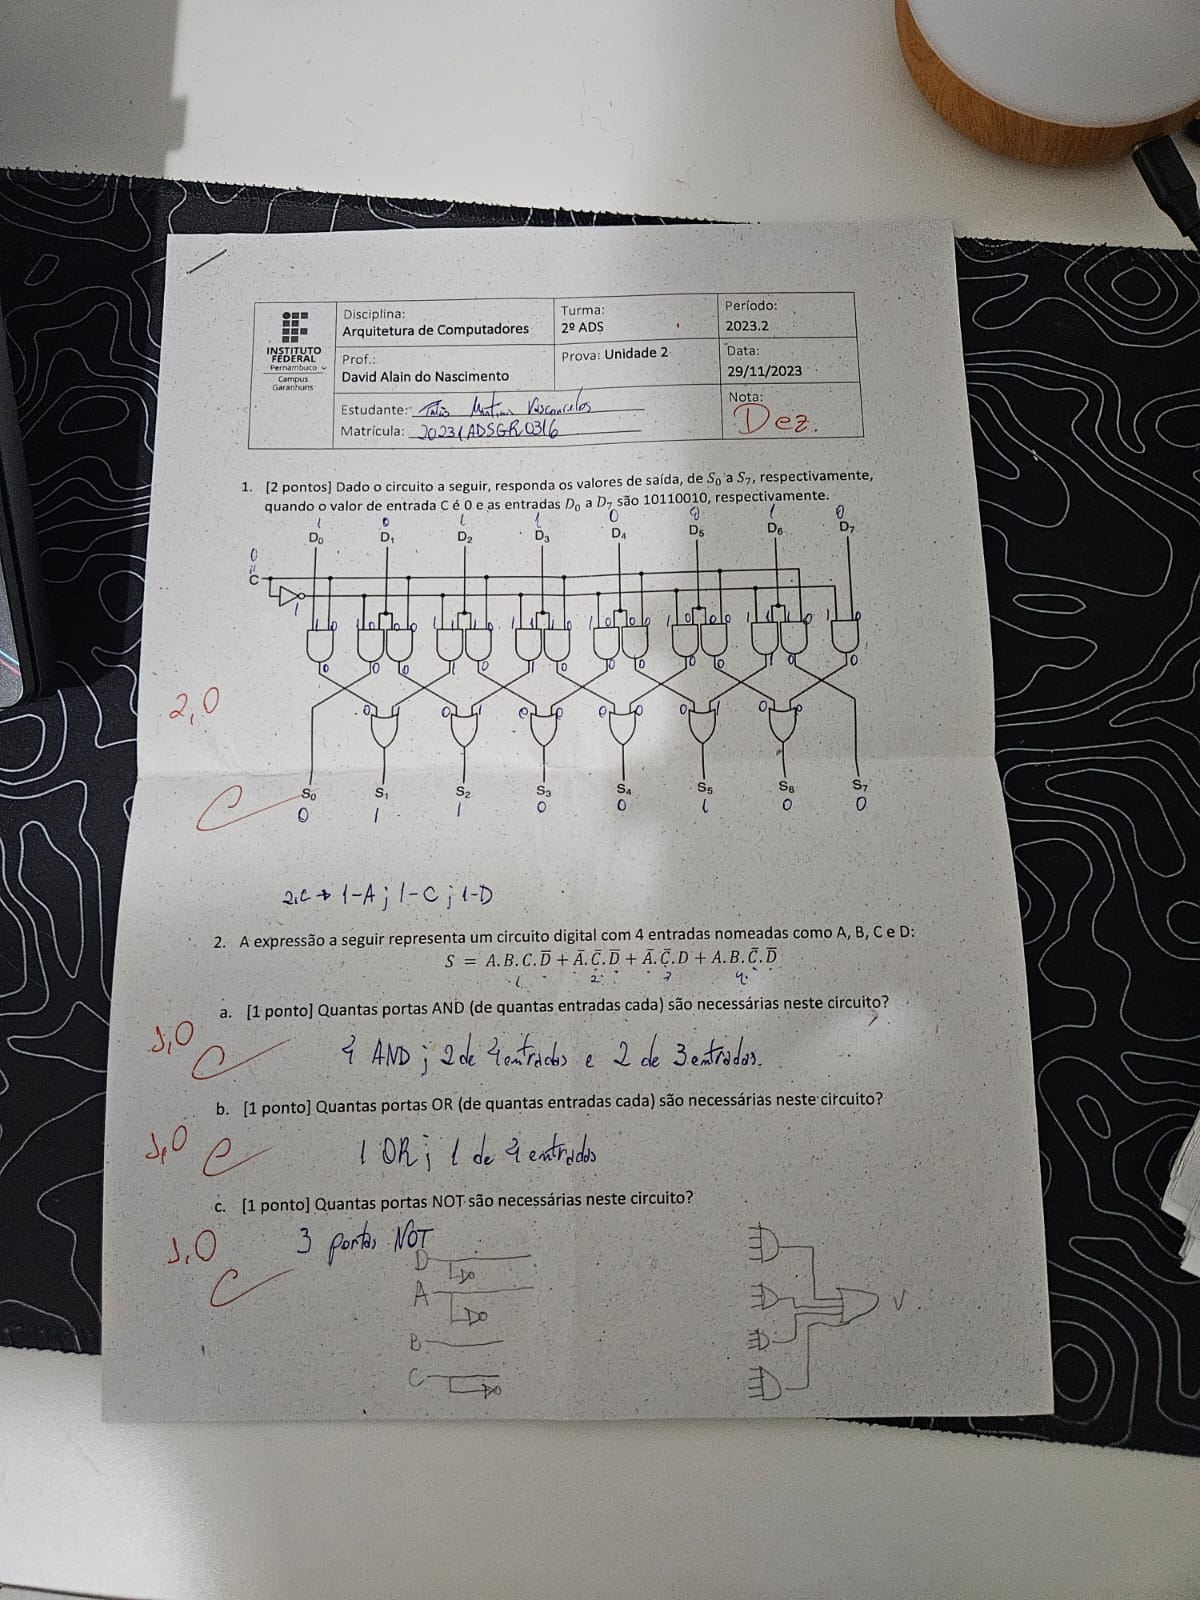 INSTITUTO
FEDERAL
Pernambuco
Campus
Garanhuns
Disciplina:
Arquitetura de Computadores
Turma:
2º ADS
Período:
2023.2
Prof.:
David Alain do Nascimento
Prova: Unidade 2
Data:
29/11/2023
Estudante: Vasconcelos
Matrícula: 20231ADSGR0316
Nota:
Dez.
1. [2 pontos] Dado o circuito a seguir, responda os valores de saída, de S₀ a S₇, respectivamente,
quando o valor de entrada C é 0 e as entradas D₀ a D₇ são 10110010, respectivamente.
1 0 1 1 0 0 1 0
D₀ D₁ D₂ D₃ D₄ D₅ D₆ D₇
0
=
C
1
1 0 1 0 0 0 1 1 1 0 1 1 1 0 1 0 0 0 1 0 0 0 1 1 1 0 1 0
0 0 0 1 0 1 0 0 0 0 0 1 0 0
2,0
0 1 0 1 0 0 0 0 0 1 0 0
S₀ S₁ S₂ S₃ S₄ S₅ S₆ S₇
0 1 1 0 0 1 0 0
2.C → 1-A ; 1-C ; 1-D
2. A expressão a seguir representa um circuito digital com 4 entradas nomeadas como A, B, C e D:
S = A.B.C.D̅ + A̅.C̅.D̅ + A̅.C̅.D + A.B.C̅.D̅
1 2 3 4
a. [1 ponto] Quantas portas AND (de quantas entradas cada) são necessárias neste circuito?
1,0
4 AND ; 2 de 4 entradas e 2 de 3 entradas.
b. [1 ponto] Quantas portas OR (de quantas entradas cada) são necessárias neste circuito?
1,0
1 OR ; 1 de 4 entradas
c. [1 ponto] Quantas portas NOT são necessárias neste circuito?
1,0
3 portas NOT
D
A
B
C